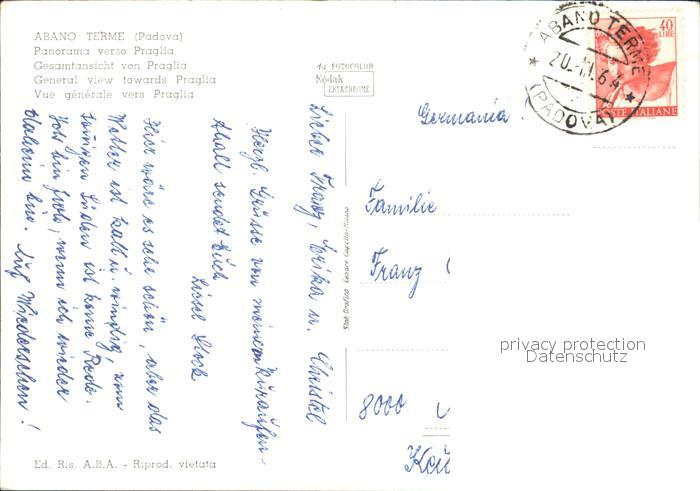 ABANO TERME (Padova)
Panorama verso Praglia
Gesamtansicht von Praglia
General view towards Praglia
Vue générale vers Praglia
da FOTOCOLOR
Kodak
EKTACHROME
Lieber Franz, Erika u. Christel
Herzl. Grüsse von meinem Kuraufen-
thalt sendet Euch
Liesel
Hier wäre es sehr schön, aber das
Wetter ist kalt u. windig, vom
sonnigen Süden ist keine Rede.
Ich bin froh, wenn ich wieder
daheim bin. Auf Wiedersehen!
Ed. Ris. A.B.A. - Riprod. vietata
Stab. Grafico Cesare Capello - Milano
ABANO TERME
(PADOVA)
40
LIRE
POSTE ITALIANE
Germania
Familie
Franz
8000
privacy protection
Datenschutz